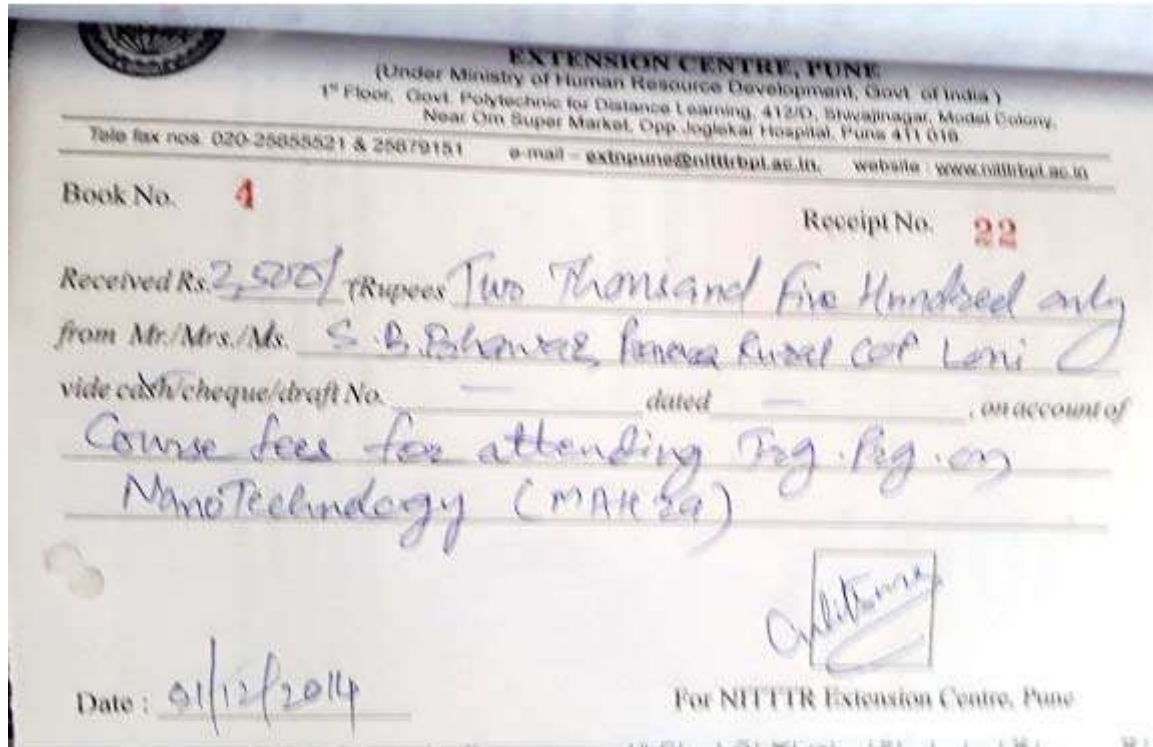 EXTENSION CENTRE, PUNE
(Under Ministry of Human Resource Development, Govt. of India )
1st Floor, Govt. Polytechnic for Distance Learning, 412/D, Shivajinagar, Model Colony,
Near Om Super Market, Opp. Joglekar Hospital, Pune 411 016
Tele fax nos. 020-25655521 & 25679151 e-mail – extnpune@nitttrbpl.ac.in, website : www.nitttrbpl.ac.in
Book No. 4
Receipt No. 22
Received Rs. 2,500/ (Rupees Two Thousand Five Hundred only
from Mr./Mrs./Ms. S.B. Bhawar, Rural COP Loni
vide cash/cheque/draft No. — dated — , on account of
Course fees for attending Trg. Prg. on
NanoTechnology
For NITTTR Extension Centre, Pune
Date : 01/12/2014